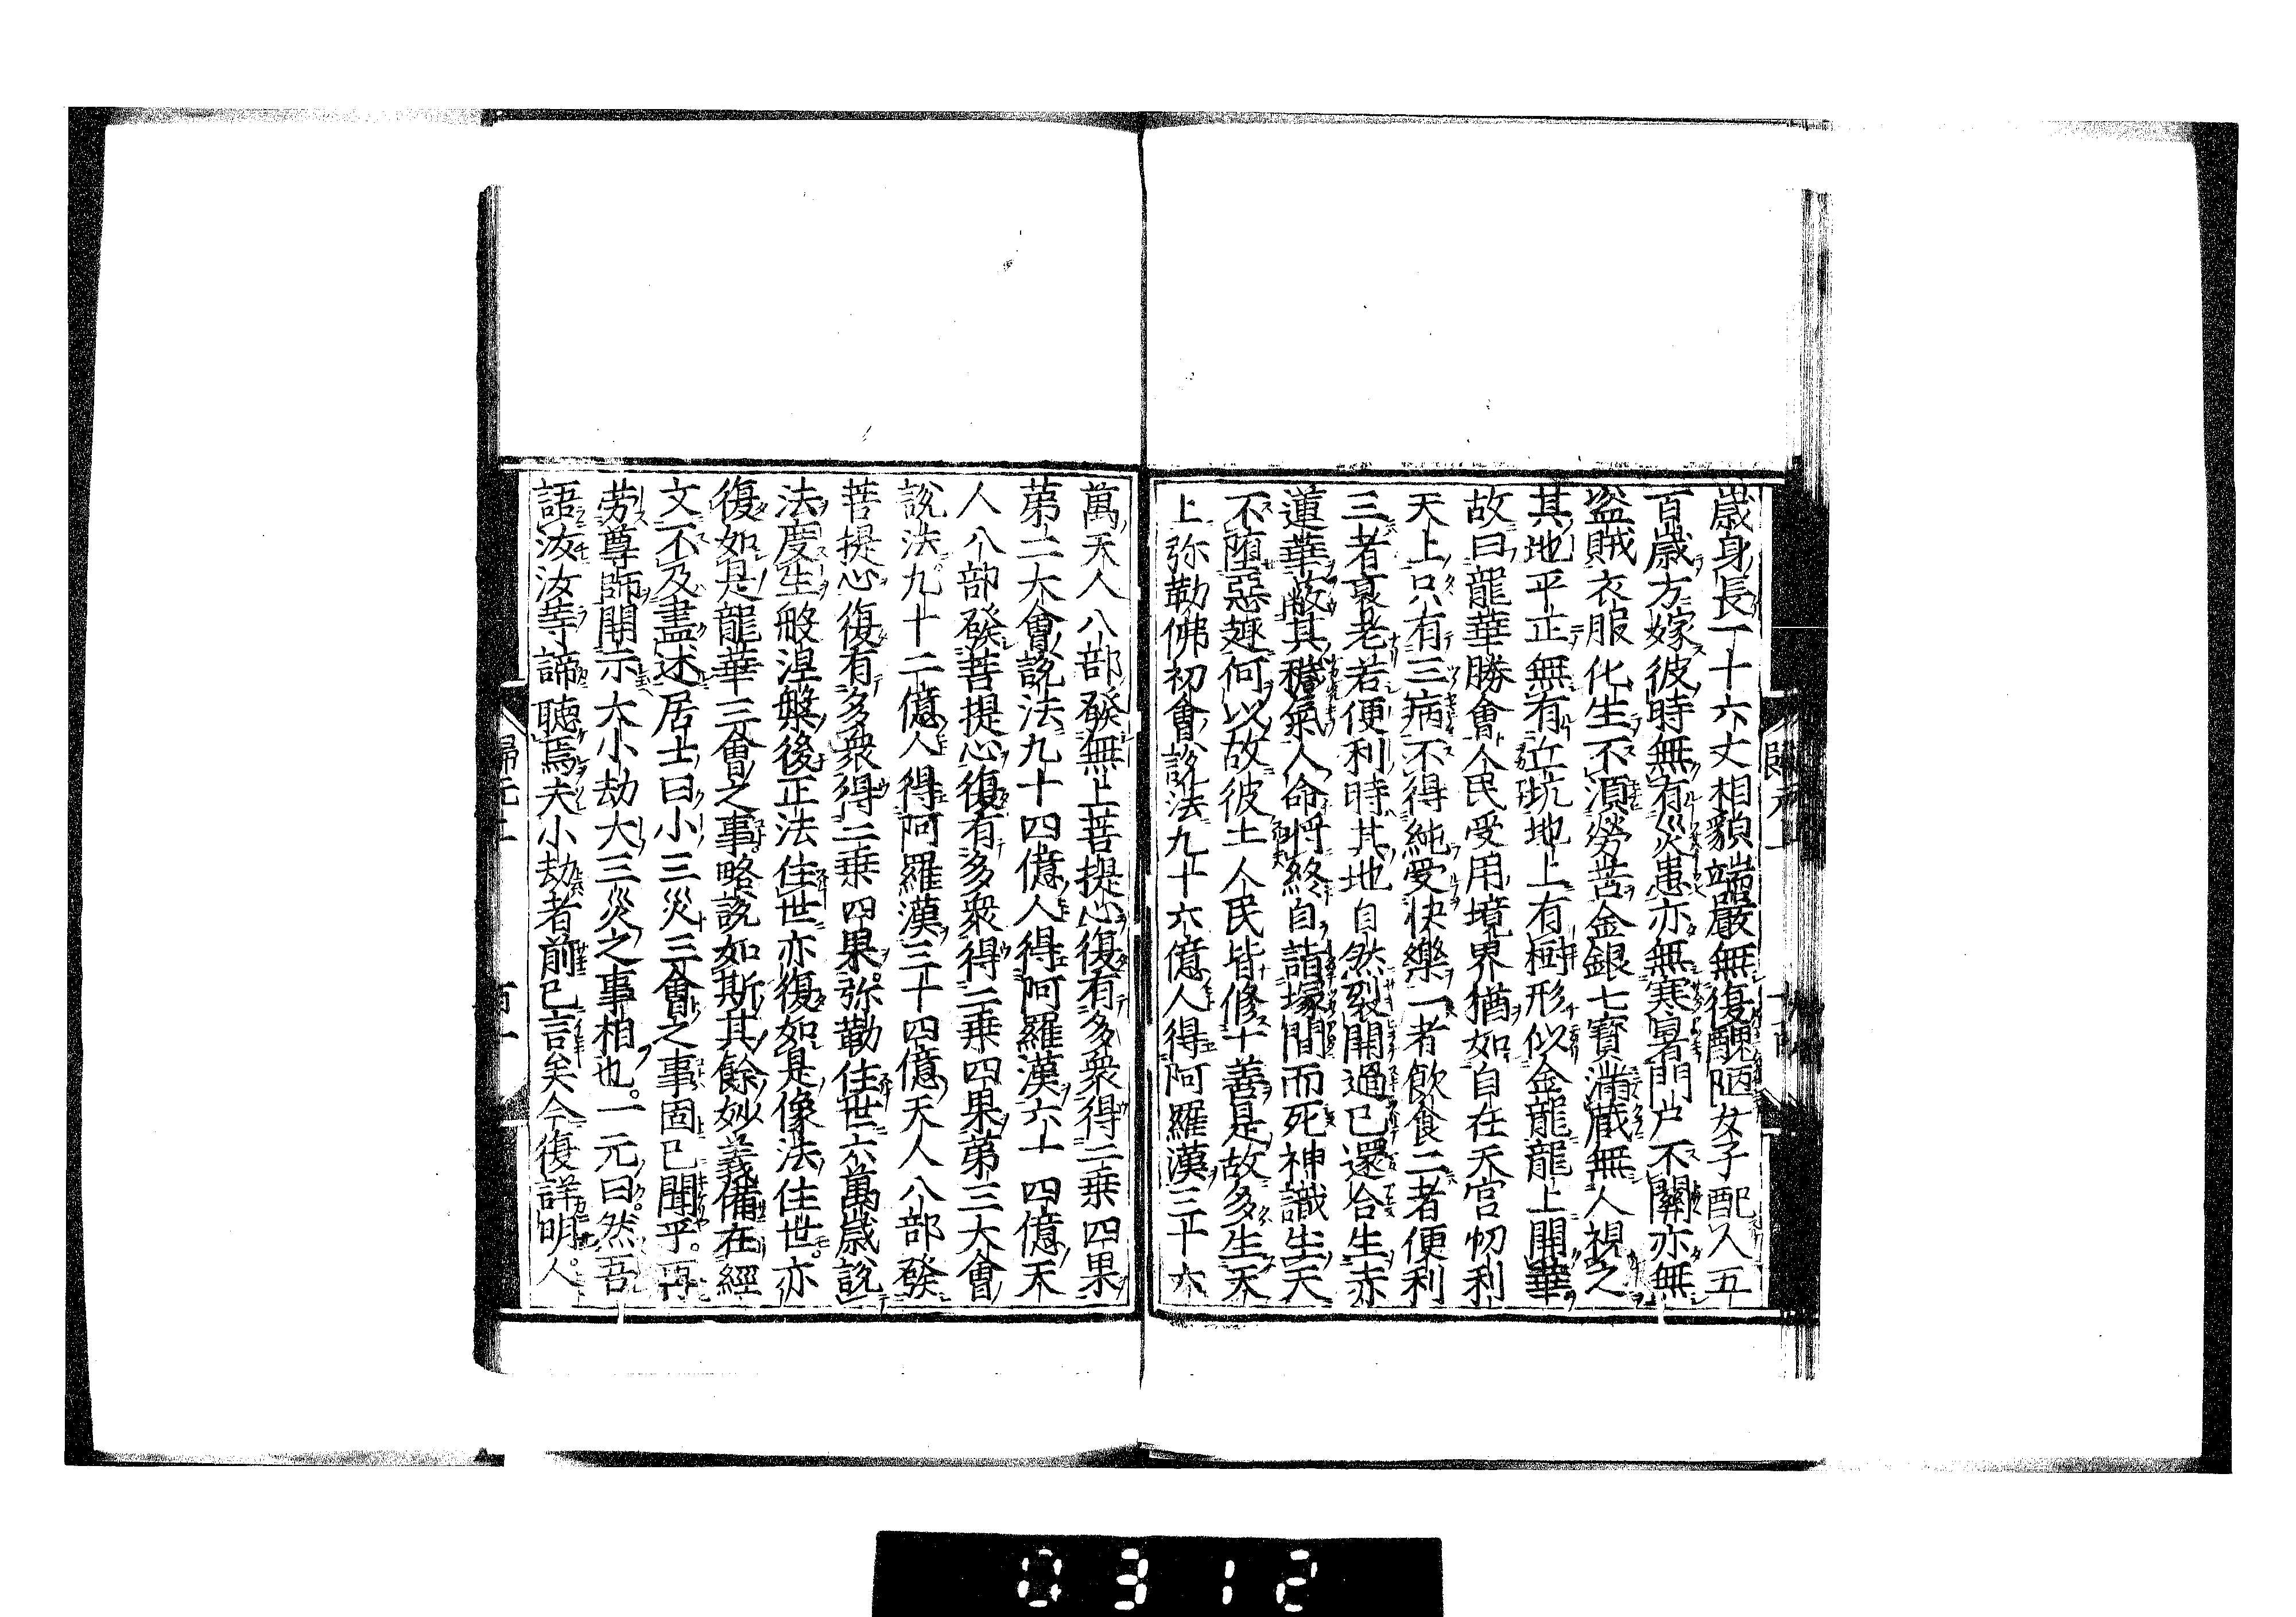 歳身長一十六丈相貌端嚴無復醜陋女子配人五
百歳方嫁彼時無有災患亦無寒暑門戸不關亦無
盗賊衣服化生不須勞苦金銀七寳滿蔵無人視之
其地平正無有丘坑地上有樹形似金龍龍上開華
故曰龍華勝會人民受用境界猶如自在天宮忉利
天上只有三病不得純受快樂一者飲食二者便利
三者衰老若便利時其地自然裂開過已還合生赤
蓮華蔽其穢氣人命將終自詣塚間而死神識生天
不墮惡趣何以故彼土人民皆修十善是故多生天
上弥勒佛初會説法九十六億人得阿羅漢三十六
萬天人八部發無上菩提心復有多衆得二乗四果
第二大會説法九十四億人得阿羅漢六十四億天
人八部發菩提心復有多衆得二乗四果第三大會
説法九十二億人得阿羅漢三十四億天人八部發
菩提心復有多衆得二乗四果弥勒住世六萬歳説
法度生般涅槃後正法住世亦復如是像法住世亦
復如是龍華三會之事略説如斯其餘妙義備在經
文不及盡述居士曰小三災三會之事固已聞乎再
労尊師開示大小劫大三災之事相也一元曰然吾
語汝汝等諦聽焉夫小劫者前已言矣今復詳明人
0312